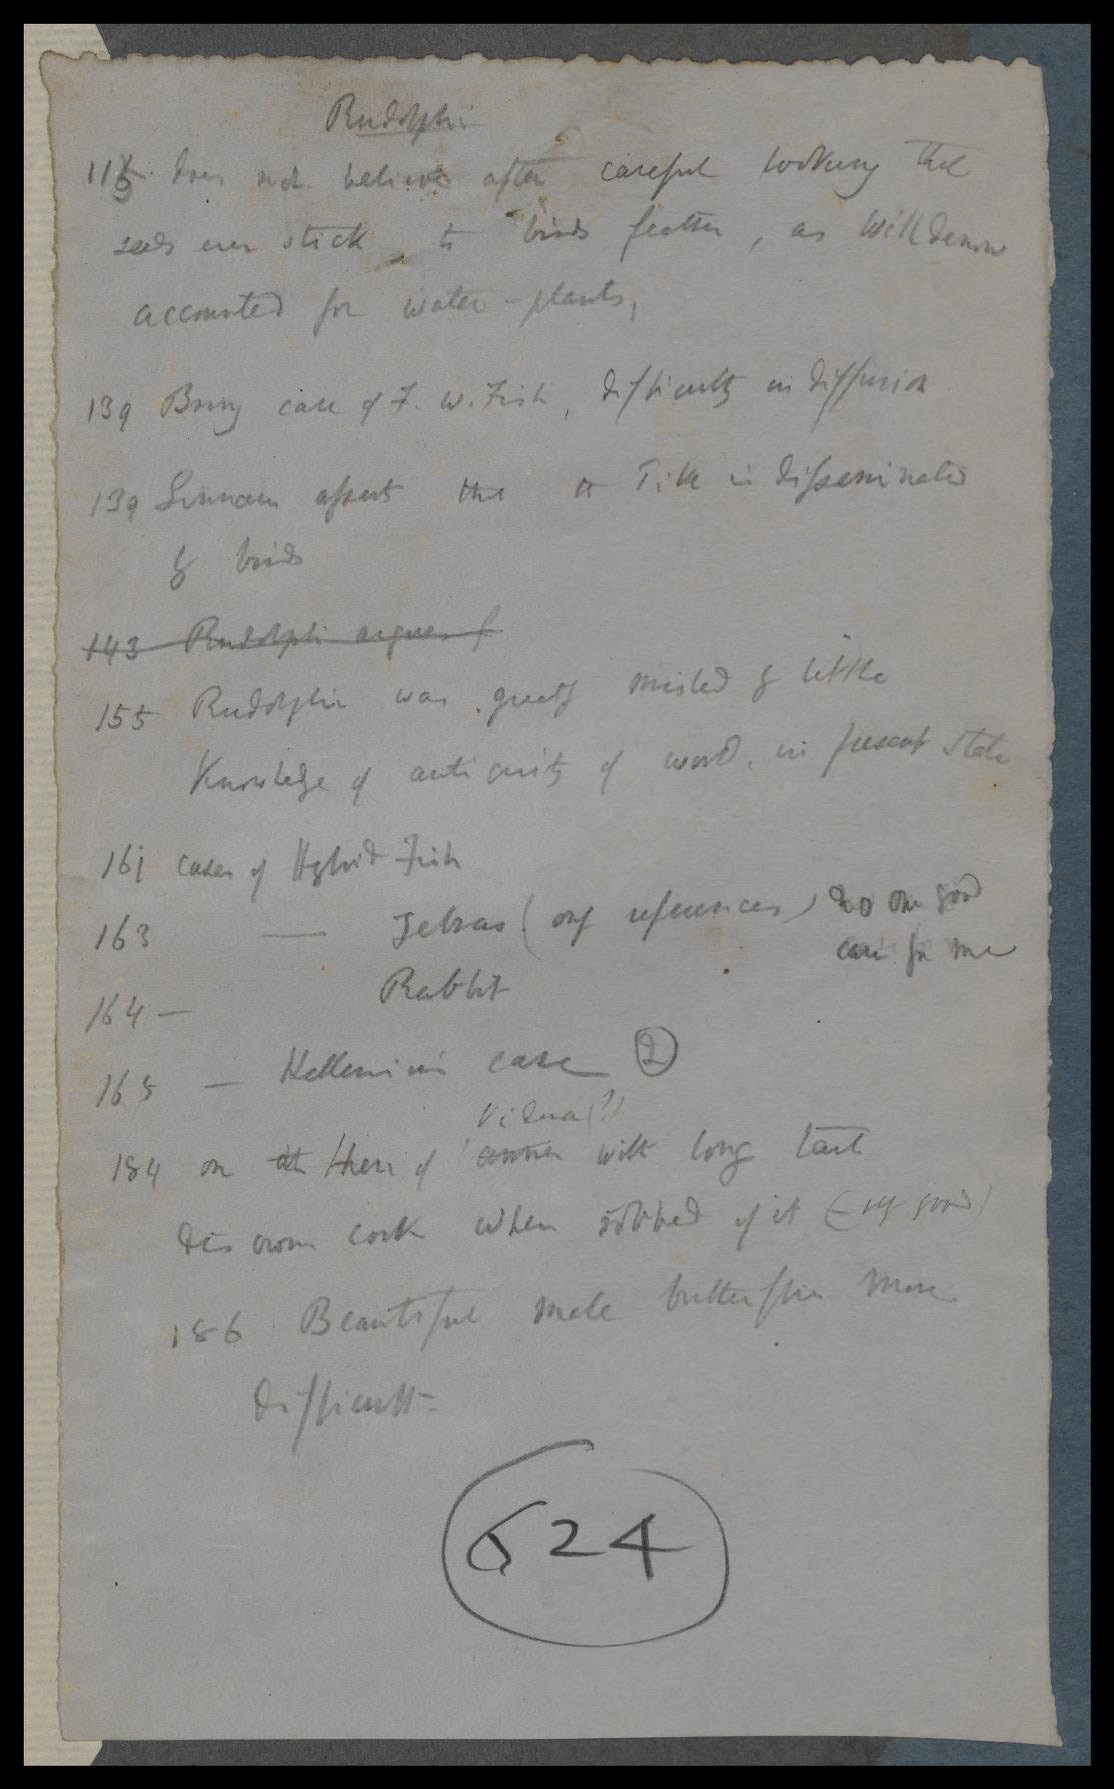 Rudolphi
115. does not believe after careful looking that
seeds ever stick to birds feather, as Willdenow
accounted for water-plants,
139 Bring case of F. W. Fish, difficulty in diffusion
139 Linnaeus assert that is disseminated
by birds
143 Rudolphi argues f
155 Rudolphi was greatly misled by little
Knowledge of antiquity of world in present state
161 cases of Hybrid Fish
163 — (only references) no one good
case for me
164 — Rabbit
165 — Hellenius case 2
Vidua (?)
184 on these of with long tail
dis own cock when robbed of it (very good)
186 Beautiful male butterflies more
difficult.
624